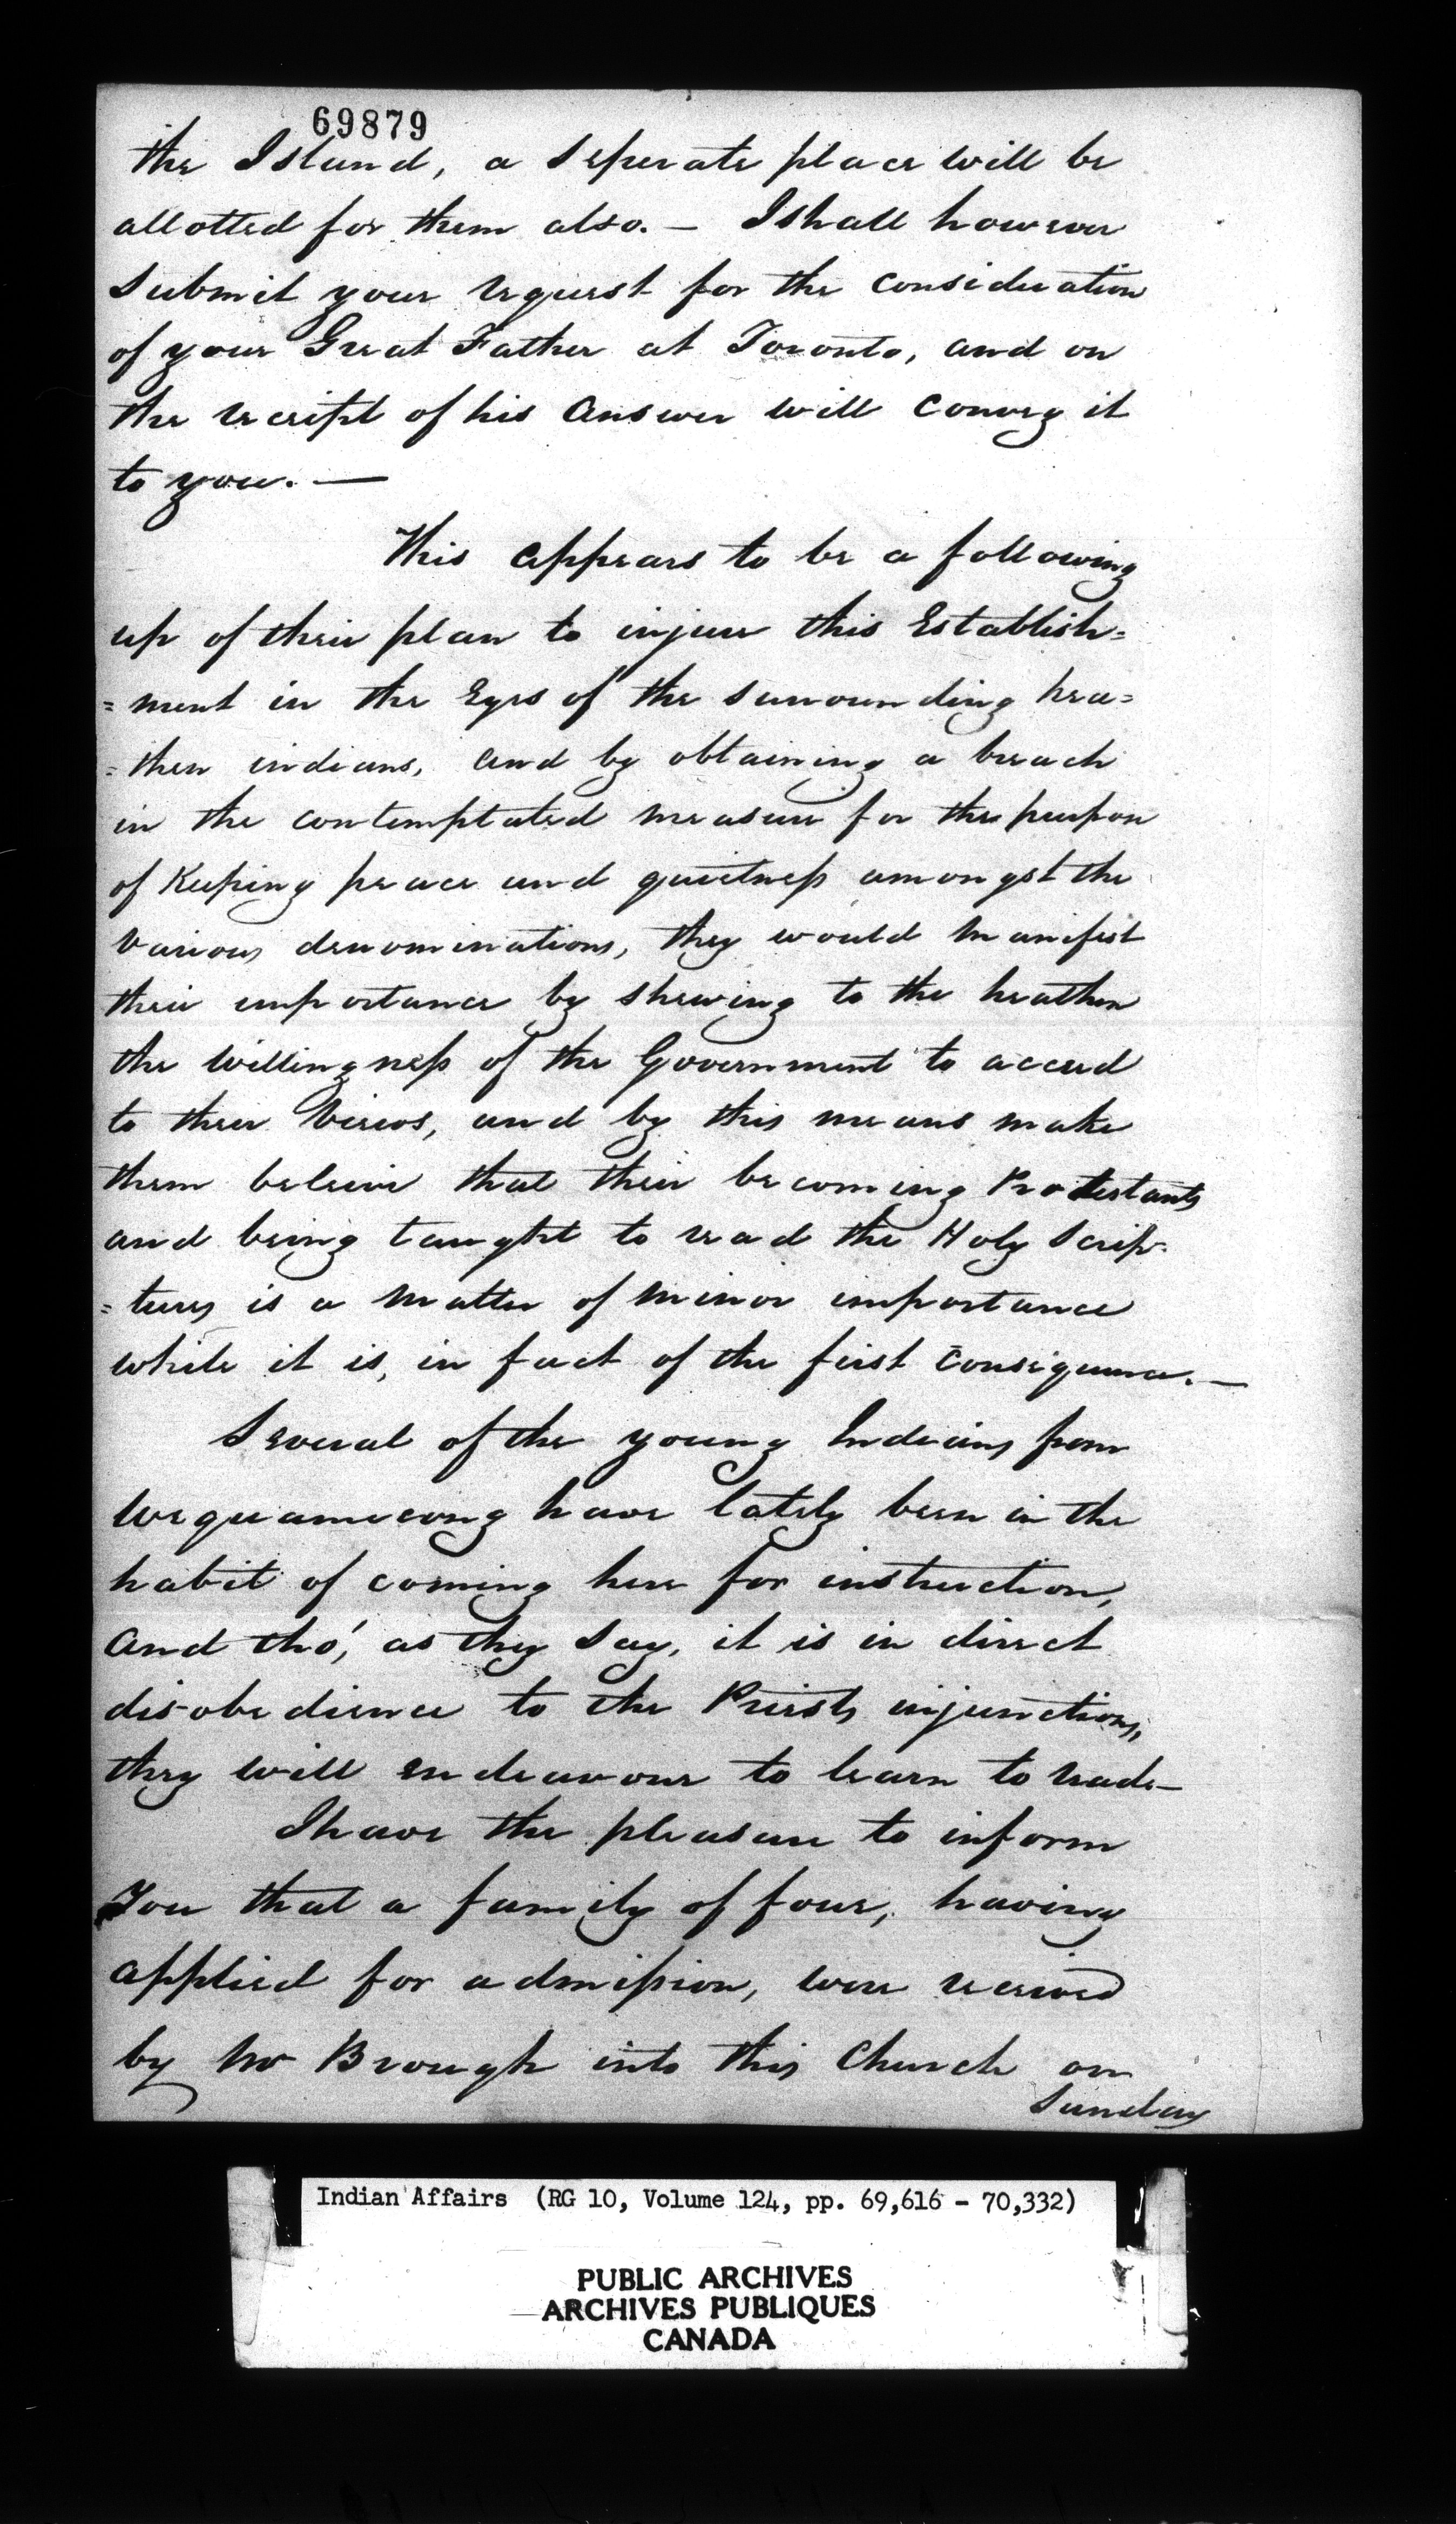 69879
the Island, a seperate place will be
allotted for them also. — I shall however
submit your request for the consideration
of your Great Father at Toronto, and on
the receipt of his answer will convey it
to you. —
This appears to be a following
up of their plan to injure this Establish=
=ment in the Eyes of the surrounding hea=
=then indians, and by obtaining a breach
in the contemptated measure for the purpose
of Keeping peace and quietness amongst the
various denominations, they would manifest
their importance by shewing to the heathen
the willingness of the Government to acceed
to their views, and by this means make
them beleive that their becoming Protestants
and being taught to read the Holy Scrip-
=tures is a matter of minor importance
while it is, in fact of the first consequence. —
Several of the young Indians from
Wequamecong have lately been in the
habit of coming here for instruction,
and tho', as they say, it is in direct
dis-obedience to the Priests injunctions,
they will endeavour to learn to read. —
I have the pleasure to inform
You that a family of four, having
applied for admission, were received
by Mr Brough into this Church on
Sunday
Indian Affairs (RG 10, Volume 124, pp. 69,616 - 70,332)
PUBLIC ARCHIVES
ARCHIVES PUBLIQUES
CANADA